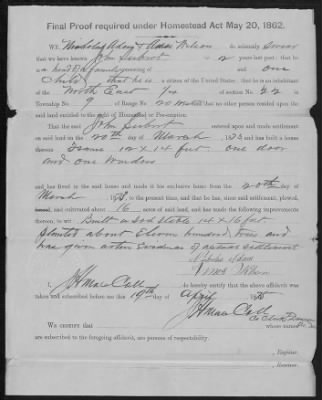 Final Proof required under Homestead Act May 20, 1862.
WE, Nicholas Adam & James Wilson do solemnly swear
that we have known John Seibert for 2 years last past; that he is
a head of a family consisting of and one
Child that he is a citizen of the United States; that he is an inhabitant
of the North East 1/4 of section No. 22 in
Township No. 9 of Range No. 20 and that no other person resided upon the said
land entitled to the right of Homestead or Pre-emption.
That the said John Seibert entered upon and made settlement
on said land on the 20th day of March, 1873 and has built a house
thereon Frame 12 x 14 feet one door
and one window
and has lived in the said house and made it his exclusive home from the 20th day of
March 1873, to the present time, and that he has, since said settlement, plowed,
and cultivated about 16 acres of said land, and has made the following improvements
thereon, to wit: Built a sod stable 14 x 16 feet
planted about Eleven hundred trees and
has given other Evidence of actual settlement
Nicholas Adam
James Wilson
I, J H MacColl do hereby certify that the above affidavit was
taken and subscribed before me this 19th day of April 1875
J H MacColl
Co Clerk Dawson
We certify that whose names
are subscribed to the foregoing affidavit, are persons of respectability.
, Register.
, Receiver.